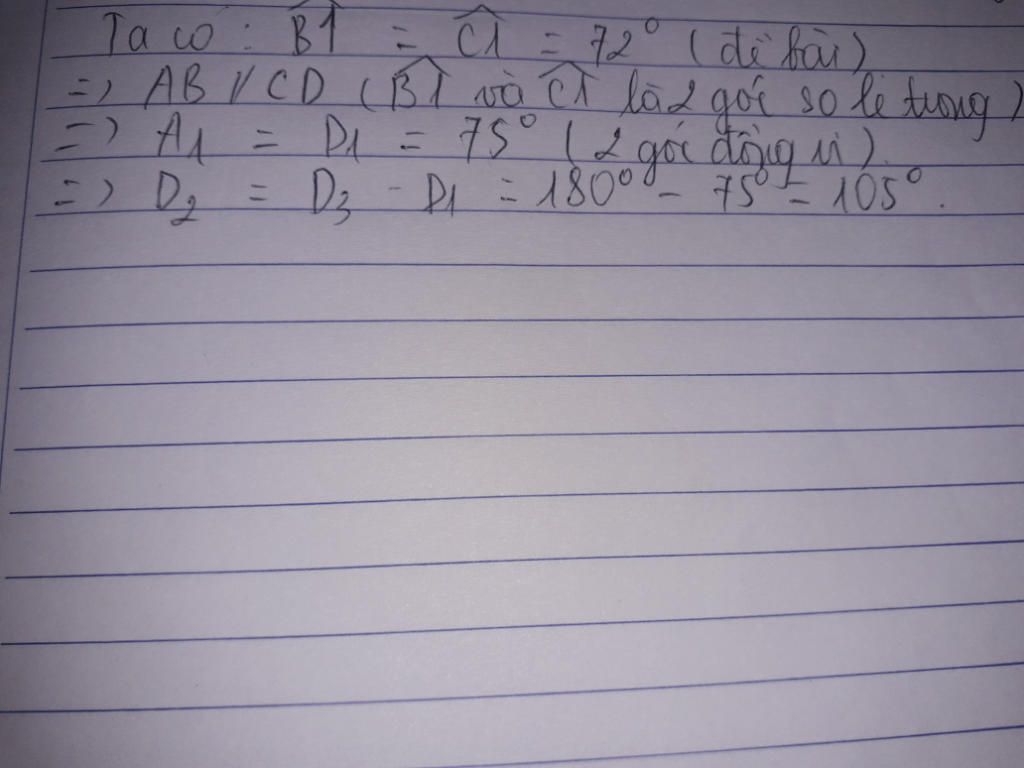 Ta có : B1 = C1 = 72° (đề bài)
=> AB // CD (B1 và C1 là 2 góc so le trong)
=> A1 = D1 = 75° (2 góc đồng vị)
=> D2 = D3 - D1 = 180° - 75° = 105°.